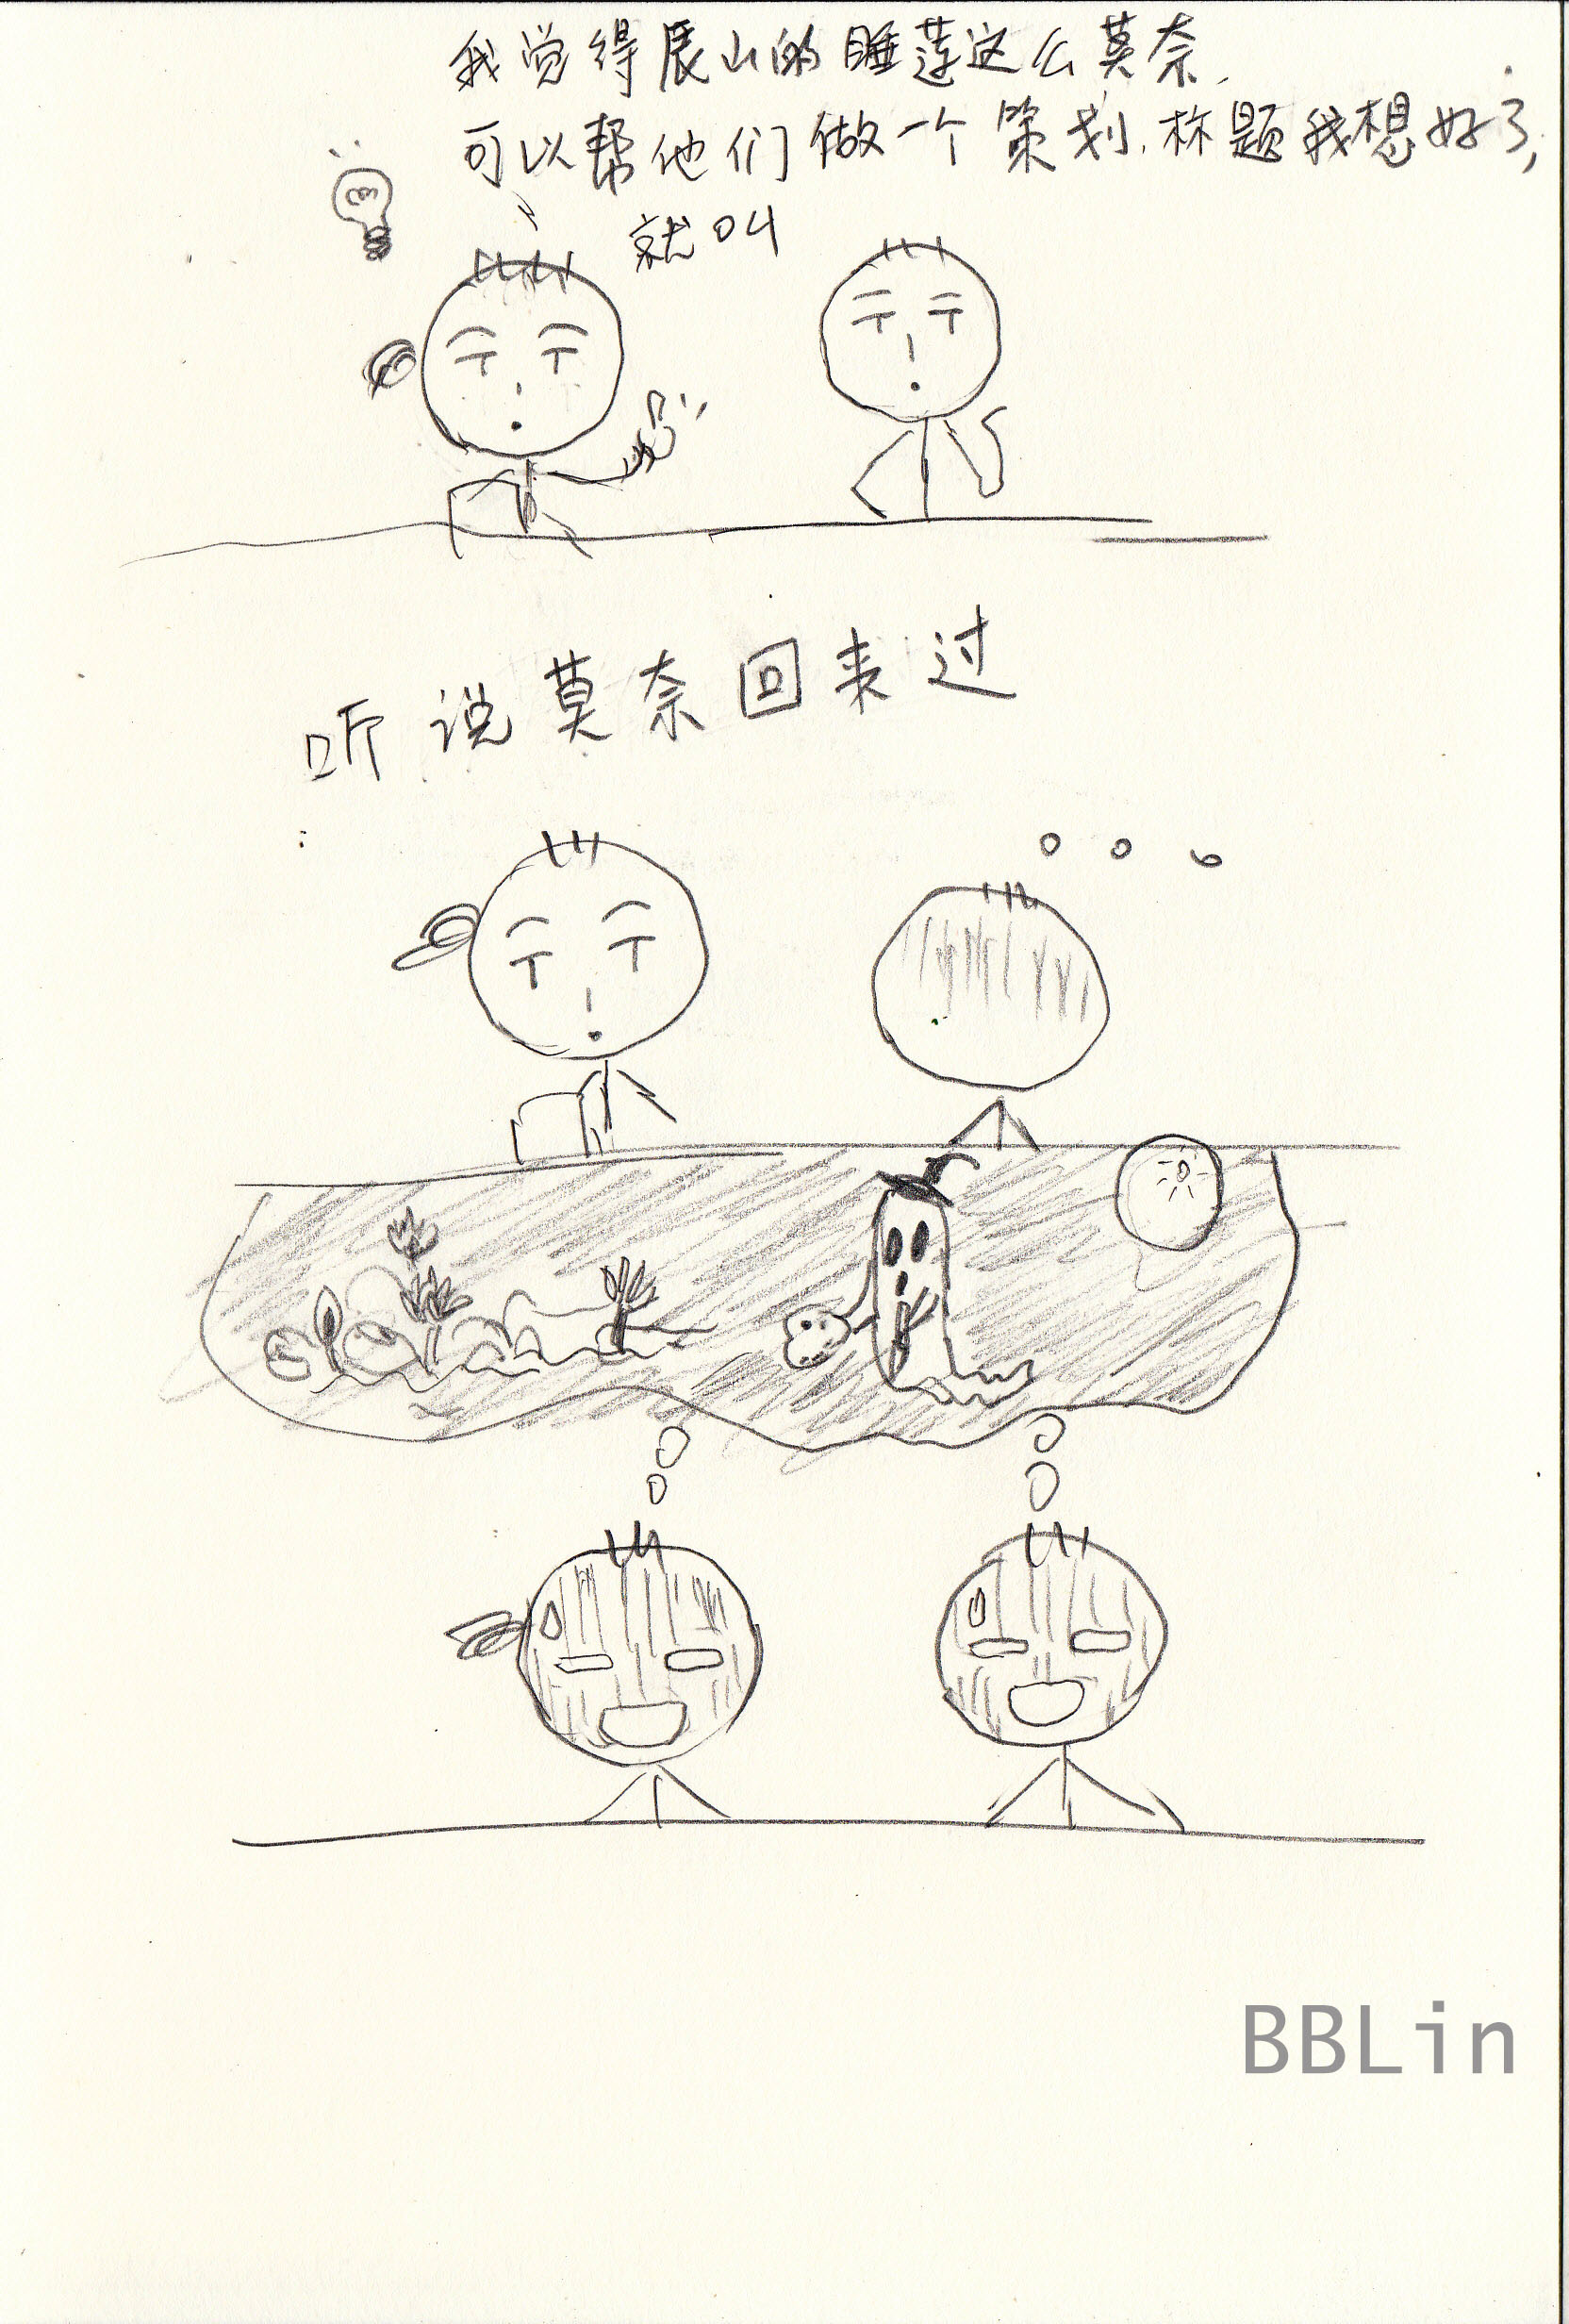 我觉得展山的睡莲这么莫奈,
可以帮他们做一个策划.标题我想好了,
就叫
听说莫奈回来过
BBLin